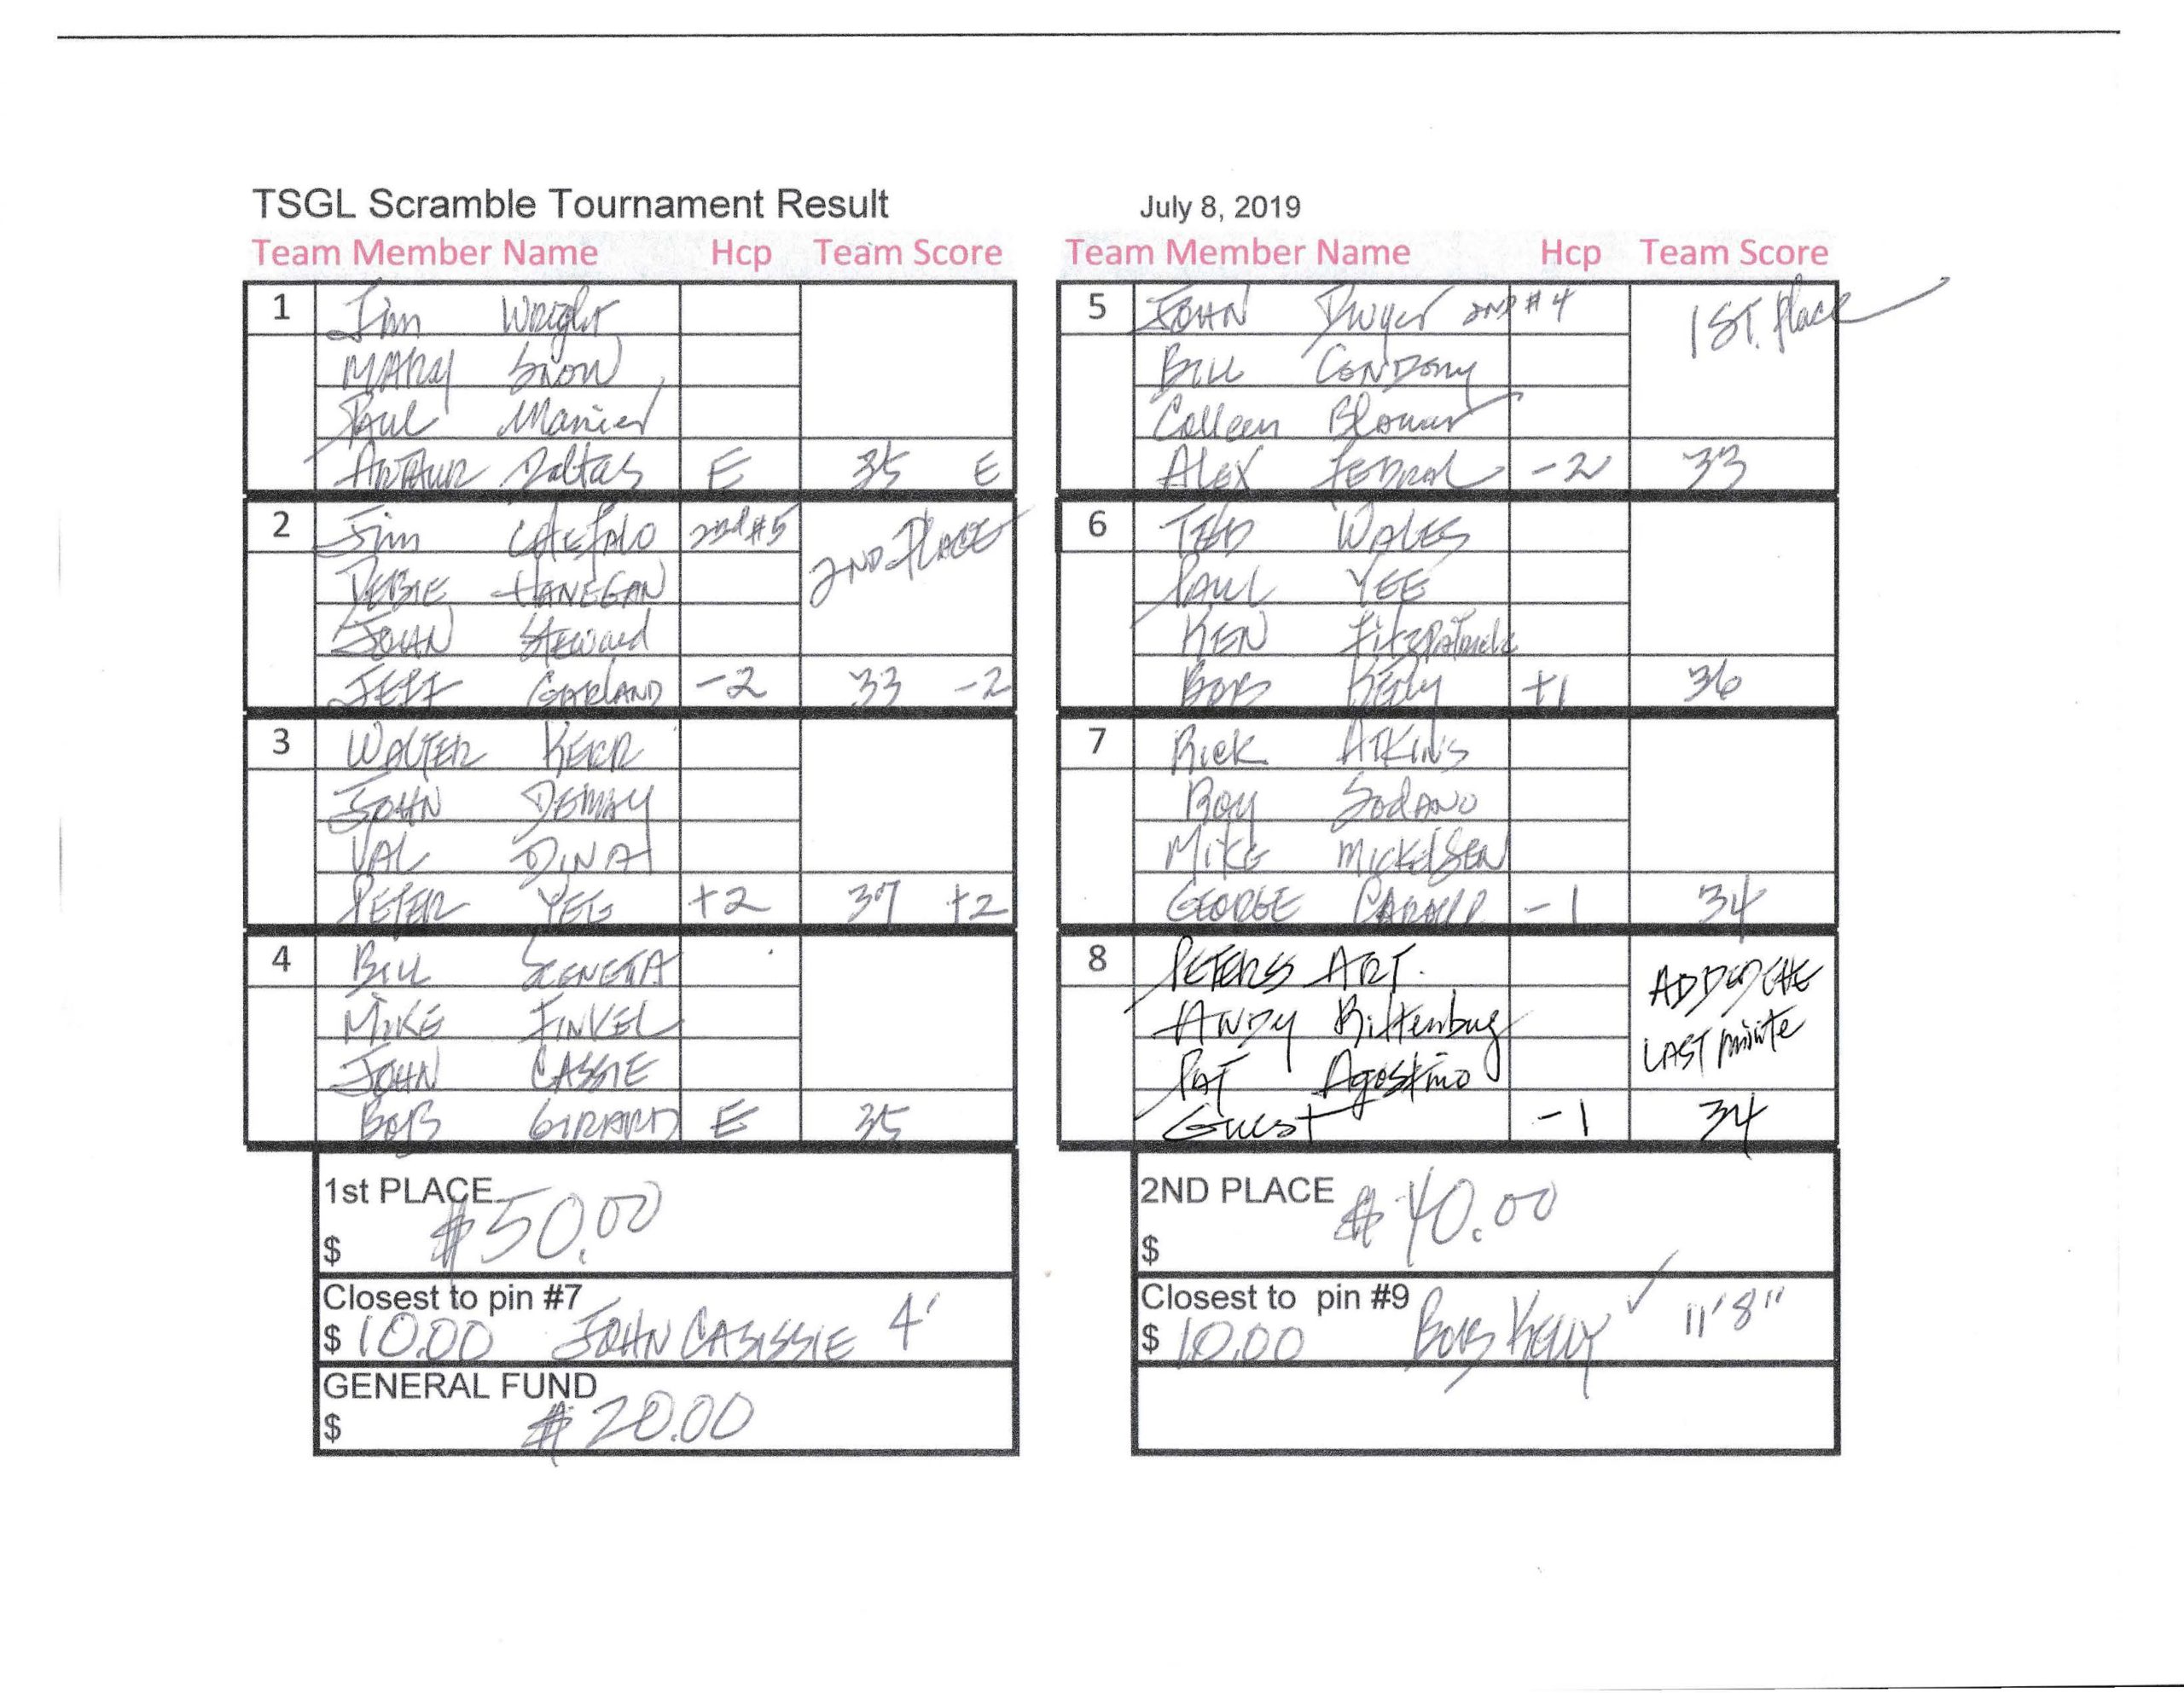 TSGL Scramble Tournament Result July 8, 2019
Team Member Name Hcp Team Score
1 Jim Wright
MARY SNOW
PAUL Manier
ARTHUR Daltas E 35 E
2 Jim CHEFALO 2nd #5 2ND PLACE
DEBIE HANEGAN
JOHN Steward
JEFF GARLAND -2 33 -2
3 WALTER KERR
JOHN DEMAY
VAL DINA
PETER YEE +2 37 +2
4 BILL
MIKE FINKEL
JOHN CASSIE
BOB GIRARD E 35
Team Member Name Hcp Team Score
5 JOHN Dwyer 2ND #4 1ST. place
BILL
Colleen
ALEX -2 33
6 TED WALES
PAUL YEE
KEN FitzPatrick
BOB Kelly +1 36
7 Rick ATKINS
Roy SodANO
MIKE MICKELSEN
GEORGE -1 34
8 PETERS ART.
ANDY
PAT Agostino
Guest -1 34
LAST minite
1st PLACE
$ $50.00
2ND PLACE
$ $40.00
Closest to pin #7
$ 10.00 JOHN CASISSIE 4'
Closest to pin #9
$ 10.00 BOB KELLY ✓ 11'8"
GENERAL FUND
$ $20.00